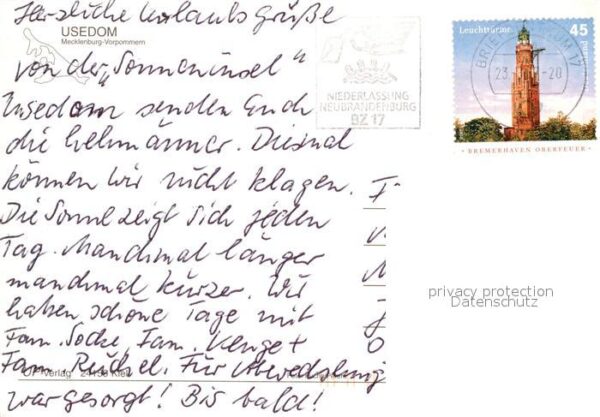 Herzliche Urlaubs Grüße
USEDOM
Mecklenburg-Vorpommern
von der „Sonneninsel"
Usedom senden Euch
die Lehmänner. Diesmal
können wir nicht klagen.
Die Sonne zeigt sich jeden
Tag. Manchmal länger
manchmal kürzer. Wir
haben schöne Tage mit
Fam. Socke, Fam. Wenget
Fam. Rudel. Für Abwechslung
war gesorgt! Bis bald!
Verlag 24159 Kiel
NIEDERLASSUNG
NEUBRANDENBURG
BZ 17
BRIEFZENTRUM 17
Leuchttürme 45
BREMERHAVEN OBERFEUER
privacy protection
Datenschutz